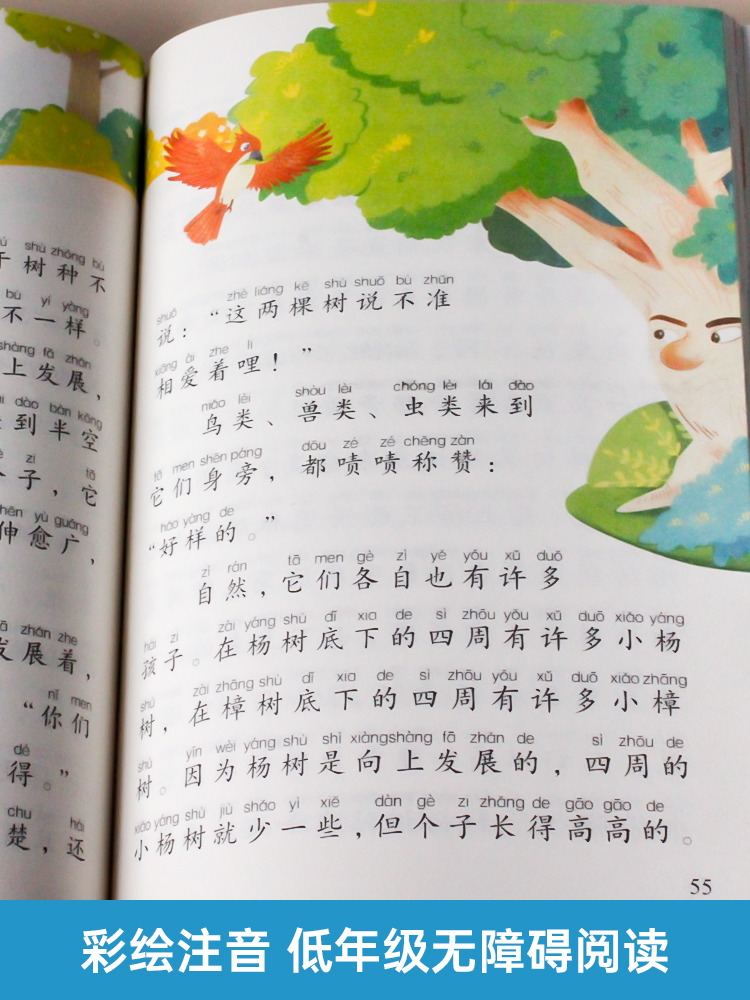 shù zhǒng bù
树种不
bù yí yàng
不一样。
shàng fā zhǎn
上发展，
dào bàn kōng
到半空
zi tā
子，它
yù guǎng
伸愈广，
zhǎn zhe
发展着，
nǐ men
“你们
dé
得。”
chu hái
楚，还
shuō zhè liǎng kē shù shuō bù zhǔn
说：“这两棵树说不准
xiāng ài zhe li
相爱着哩！”
niǎo lèi shòu lèi chóng lèi lái dào
鸟类、兽类、虫类来到
tā men shēn páng dōu zé zé chēng zàn
它们身旁，都啧啧称赞：
hǎo yàng de
“好样的。”
zì rán tā men gè zì yě yǒu xǔ duō
自然，它们各自也有许多
hái zi zài yáng shù dǐ xia de sì zhōu yǒu xǔ duō xiǎo yáng
孩子。在杨树底下的四周有许多小杨
shù zài zhāng shù dǐ xia de sì zhōu yǒu xǔ duō xiǎo zhāng
树，在樟树底下的四周有许多小樟
shù yīn wèi yáng shù shì xiàng shàng fā zhǎn de sì zhōu de
树。因为杨树是向上发展的，四周的
xiǎo yáng shù jiù shǎo yì xiē dàn gè zi zhǎng de gāo gāo de
小杨树就少一些，但个子长得高高的。
55
彩绘注音 低年级无障碍阅读